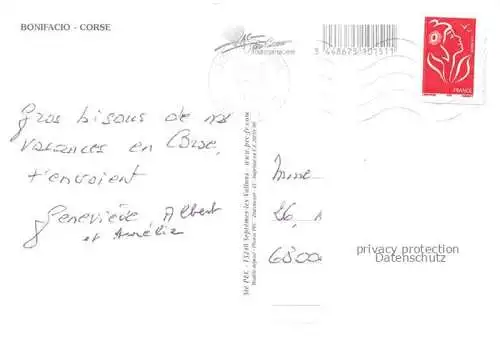 BONIFACIO - CORSE
3 448675 101511
FRANCE
Gros bisous de nos
vacances en Corse,
t'envoient
Geneviève, Albert
et Aurélie
Mme
26,
68000
privacy protection
Datenschutz
Sté PEC - 13240 Septèmes-les-Vallons - www.pec-fr.com